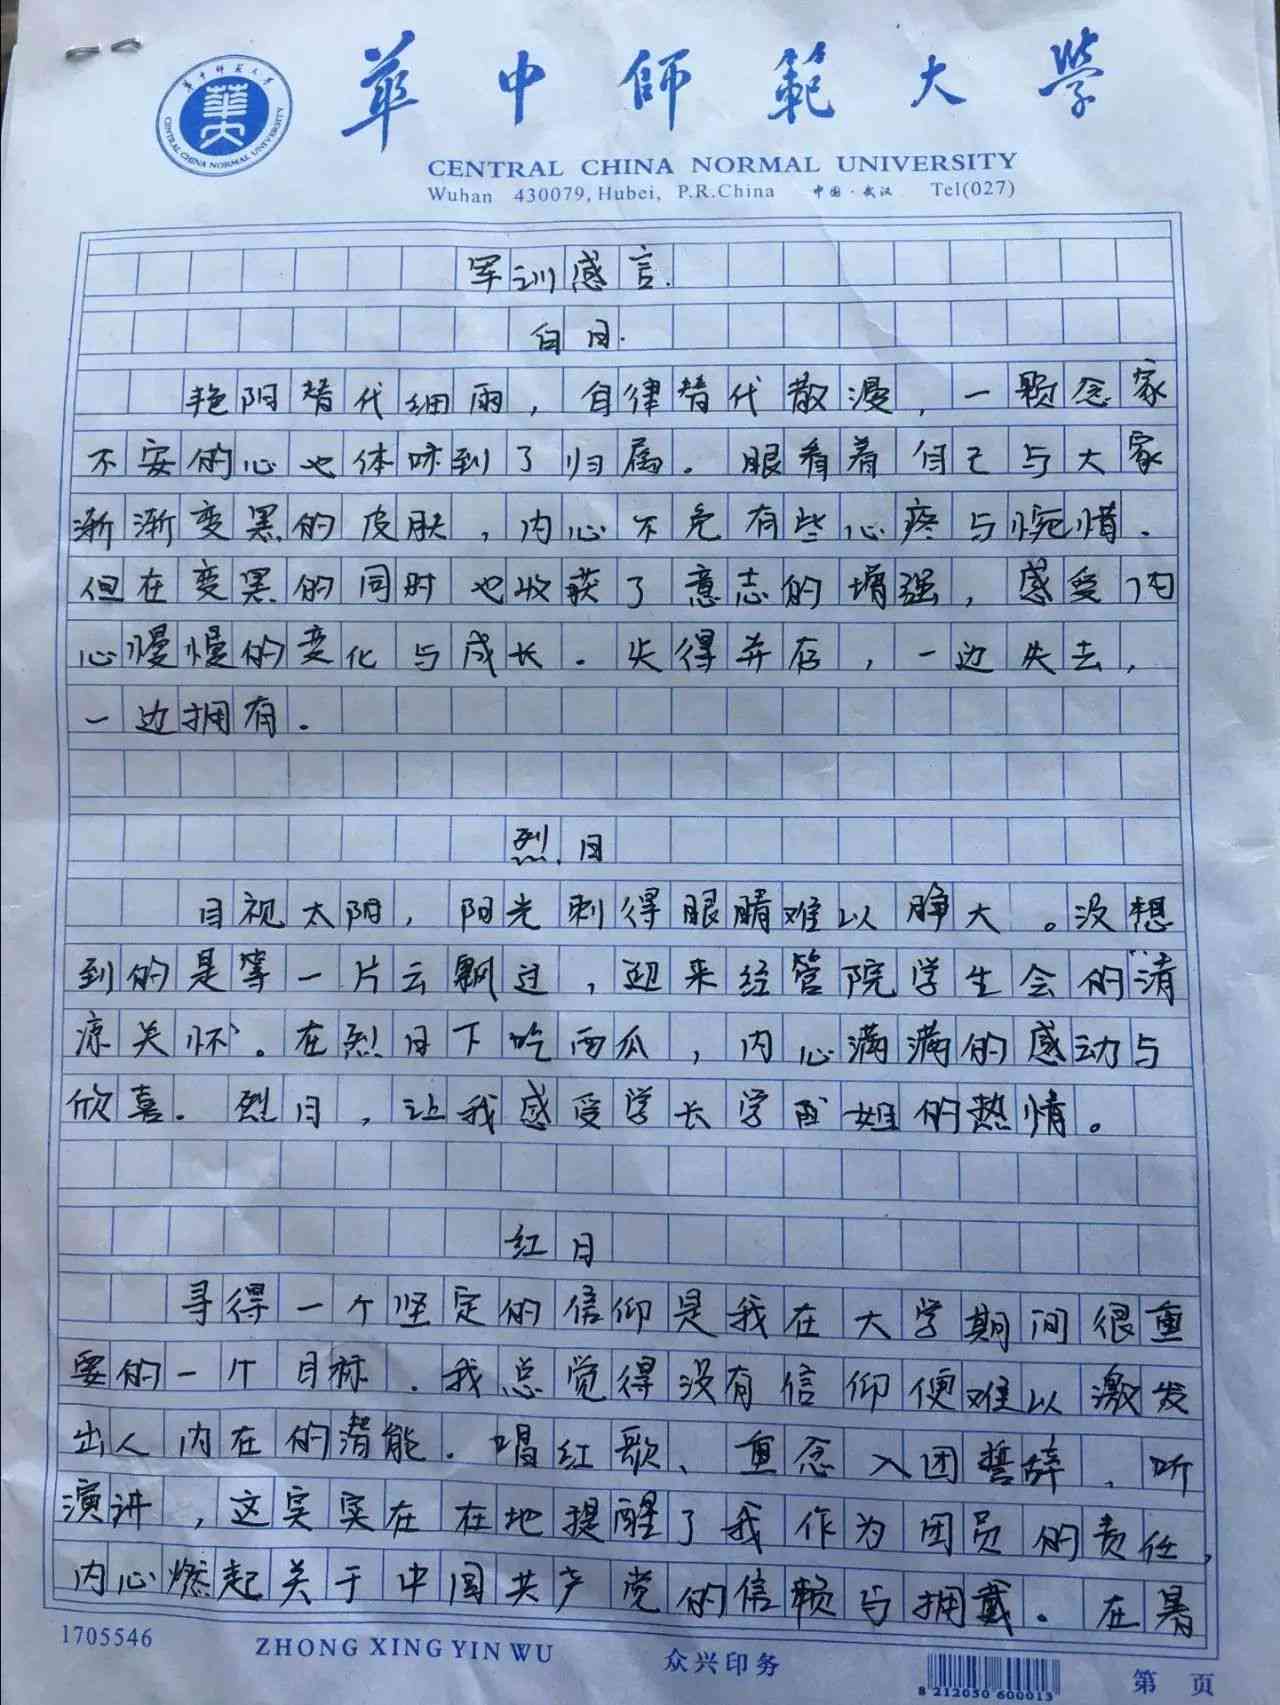 華中師範大學
華中師范大學
華大
CENTRAL CHINA NORMAL UNIVERSITY
CENTRAL CHINA NORMAL UNIVERSITY
Wuhan 430079, Hubei, P.R.China 中国·武汉 Tel(027)
军训感言.
白日.
艳阳替代细雨，自律替代散漫，一颗念家
不安的心也体味到了归属。眼看着自己与大家
渐渐变黑的皮肤，内心不免有些心疼与惋惜.
但在变黑的同时也收获了意志的增强，感受内
心慢慢的变化与成长.失得并存，一边失去，
一边拥有.
烈日
目视太阳，阳光刺得眼睛难以睁大。没想
到的是等一片云飘过，迎来经管院学生会的清
凉关怀。在烈日下吃西瓜，内心满满的感动与
欣喜.烈日，让我感受学长学姐的热情。
红日
寻得一个坚定的信仰是我在大学期间很重
要的一个目标.我总觉得没有信仰便难以激发
出人内在的潜能.唱红歌、重念入团誓辞、听
演讲，这实实在在地提醒了我作为团员的责任，
内心燃起关于中国共产党的信赖与拥戴。在暑
1705546 ZHONG XING YIN WU 众兴印务 8 212030 600013 第 页